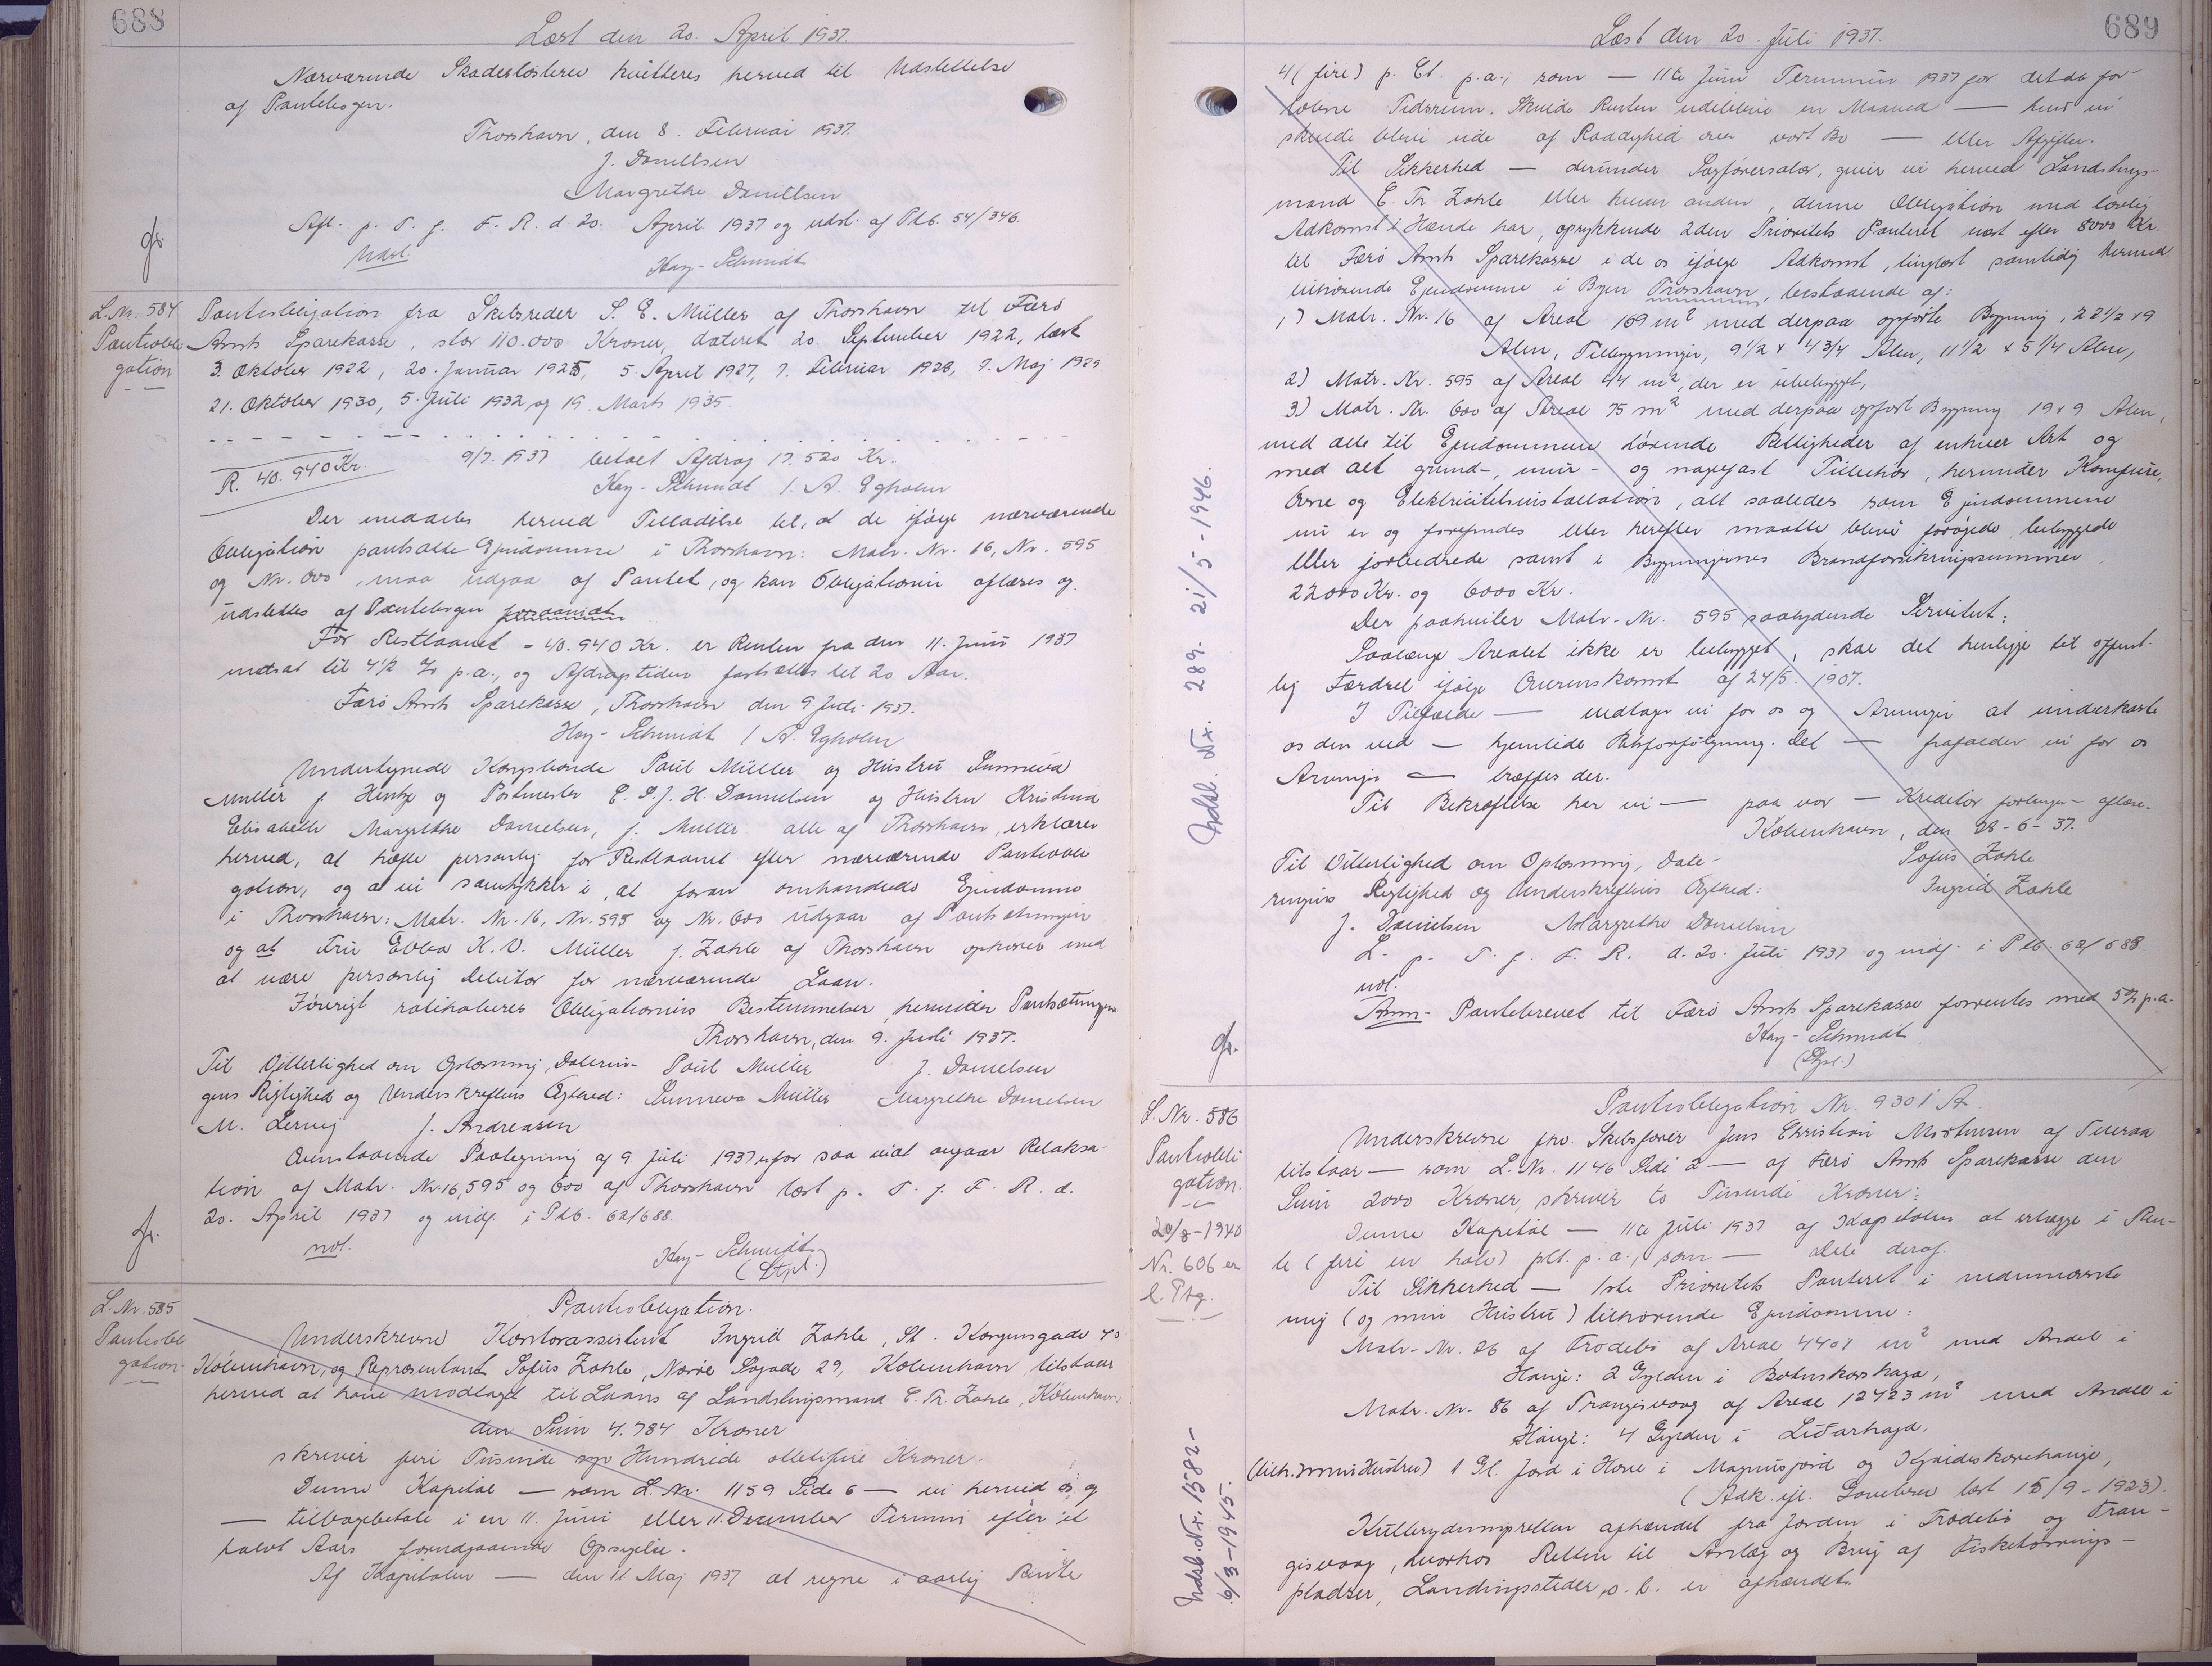 688
Læst den 20. April 1937.
Nærværende Skadesløsbrev kvitteres herved til Udslettelse
af Pantebogen.
Thorshavn, den 8. Februar 1937.
J. Danielsen
Margrethe Danielsen
Afl. p. T. f. F. R. d. 20. April 1937 og udsl. af Ptb. 54/346.
Udsl.
Kay-Schmidt
gr.
L. Nr. 584
Pantobli
gation
Pantobligation fra Skibsreder S. E. Müller af Thorshavn til Færø
Amts Sparekasse, stor 110.000 Kroner, dateret 20. September 1922, læst
3. Oktober 1922, 20. Januar 1925, 5. April 1927, 7. Februar 1928, 7. Maj 1929
21. Oktober 1930, 5. Juli 1932 og 19. Marts 1935.
R. 40.940 Kr.
9/7. 1937 betalt Afdrag 17.520 Kr.
Kay-Schmidt / A. Egholm
Der meddeles herved Tilladelse til, at de ifølge nærværende
Obligation pantsatte Ejendomme i Thorshavn: Matr. Nr. 16, Nr. 595
og Nr. 600, maa udgaa af Pantet, og kan Obligationen aflæses og
udslettes af Pantebogen forsaavidt
For Restlaanet - 40.940 Kr. er Renten fra den 11. Juni 1937
nedsat til 4½ % p.a., og Afdragstiden fastsættes til 20 Aar.
Færø Amts Sparekasse, Thorshavn den 9. Juli 1937.
Kay-Schmidt / A. Egholm
Undertegnede Kongsbonde Poul Müller og Hustru Sunneva
Müller f. Hentze og Postmester E. D. J. H. Danielsen og Hustru Kristina
Elisabeth Margrethe Danielsen, f. Müller alle af Thorshavn, erklærer
herved, at hæfte personlig for Restlaanet efter nærværende Pantobli
gation, og at vi samtykker i, at foran omhandlede Ejendomme
i Thorshavn: Matr. Nr. 16, Nr. 595 og Nr. 600 udgaar af Pantsætningen
og at Fru Ebba K. V. Müller f. Zahle af Thorshavn ophører med
at være personlig Debitor for nærværende Laan.
Iøvrigt ratihaberes Obligationens Bestemmelser herunder Pantsætningen
Thorshavn, den 9. Juli 1937.
Til Vitterlighed om Oplæsning, Daterin- Poul Müller J. Danielsen
gens Rigtighed og Underskriftens Ægthed: Sunneva Müller Margrethe Danielsen
M. Lervig J. Andreasen
Ovenstaaende Paategning af 9 Juli 1937 er for saa vidt angaar Relaksa
tion af Matr. Nr. 16, 595 og 600 af Thorshavn læst p. T. f. F. R. d.
20. April 1937 og indf. i Ptb. 62/688.
not.
Kay-Schmidt
(Stpl.)
gr.
L. Nr. 585
Pantobli
gation
Pantobligation.
Underskrevne Kontorassistent Ingrid Zahle, St. Kongensgade 40
København, og Repræsentant Sofus Zahle, Nørre Søgade 29, København tilstaar
herved at have modtaget til Laans af Landstingsmand C. Th. Zahle, København
den Sum 4.784 Kroner
skriver fire Tusinde syv Hundrede ottetifire Kroner.
Denne Kapital — som L. Nr. 1159 Side 6 — vi herved os og
— tilbagebetale i en 11. Juni eller 11. December Termin efter et
halvt Aars forudgaaende Opsigelse.
Af Kapitalen — den 11 Maj 1937 at regne i aarlig Rente
689
Læst den 20. Juli 1937.
4 (fire) p. Ct. p.a., som — 11te Juni Terminen 1937 for det da for-
løbne Tidsrum. Skulde Renten udebleve en Maaned — hvis vi
skulde blive ude af Raadighed over vort Bo — eller Afgifter.
Til Sikkerhed — derunder Sagførersalær, giver vi herved Landstings-
mand C. Th. Zahle eller hvem anden, denne Obligation med lovlig
Adkomst i Hænde har, oprykkende 2den Prioritets Panteret næst efter 8000 Kr.
til Færø Amts Sparekasse i de os ifølge Adkomst, tinglæst samtidig hermed
tilhørende Ejendomme i Byen Thorshavn, bestaaende af:
1) Matr. Nr. 16 af Areal 109 m² med derpaa opførte Bygning, 22½ x 9
Alen, Tilbygninger, 9½ x 4¾ Alen, 11½ x 5¼ Alen,
2) Matr. Nr. 595 af Areal 44 m², der er ubebygget,
3) Matr. Nr. 600 af Areal 75 m² med derpaa opført Bygning 19 x 9 Alen,
med alle til Ejendommene hørende Rettigheder af enhver Art og
med alt grund-, mur- og nagelfast Tilbehør, herunder Komfure,
Ovne og Elektricitetsinstallation, alt saaledes som Ejendommene
nu er og forefindes eller herefter maatte blive forøgede, bebyggede
eller forbedrede samt i Bygningernes Brandforsikringssummer
22000 Kr. og 6000 Kr.
Der paahviler Matr. Nr. 595 saalydende Servitut:
Saalænge Arealet ikke er bebygget, skal det henligge til offent-
lig Færdsel ifølge Overenskomst af 24/5. 1907.
I Tilfælde — vedtager vi for os og Arvinger at underkaste
os den ved — hjemlede Retsforfølgning. Det — frafalder vi for os
Arvinger — træffes der.
Til Bekræftelse har vi — paa vor — Kreditor forlanger - aflæse.
København, den 28-6-37.
Til Vitterlighed om Oplæsning, Date- Sofus Zahle
ringens Rigtighed og Underskriftens Ægthed: Ingrid Zahle
J. Danielsen Margrethe Danielsen
L. p. T. f. F. R. d. 20. Juli 1937 og indf. i Ptb. 62/688.
not.
Anm- Pantebrevet til Færø Amts Sparekasse forrentes med 5 % p.a.
Kay-Schmidt
(Stpl.)
gr.
Udsl. Nr. 289. 21/5-1946.
L. Nr. 586
Pantobli
gation.
20/8-1940
Nr. 606 er
l. Ptg.
Pantobligation Nr. 9301 A.
Underskrevne fhv. Skibsfører Jens Christian Mortensen af Tveraa
tilstaar — som L. Nr. 1146 Side 2 — af Færø Amts Sparekasse den
Sum 2000 Kroner, skriver to Tusinde Kroner:
Denne Kapital — 11te Juli 1937 af Kapitalen at erlægge i Ren-
te (fire en halv) pCt. p.a., som — Dele deraf.
Til Sikkerhed — 1ste Prioritets Panteret i nedennævnte
mig (og min Hustru) tilhørende Ejendomme:
Matr. Nr. 26 af Frodebø af Areal 4401 m² med Andel i
Hauge: 2 Gylden i Botnskorshaga,
Matr. Nr. 86 af Trangisvaag af Areal 12723 m² med Andel i
Hauge: 4 Gylden i Liðarhaga.
(tilh. min Hustru) 1 Gl. Jord i Hove i Magnusjord og Kjaldeskorehauge,
(Adk. ifl. Gavebrev læst 15/9-1923).
Kulbrydningsretten afhændet fra Jorden i Frodebø og Tran-
gisvaag, hvorhos Retten til Anlæg og Brug af Fisketørrings-
pladser, Landingssteder o. l. er afhændet.
Udsl. Nr. 1582-
6/3-1945.